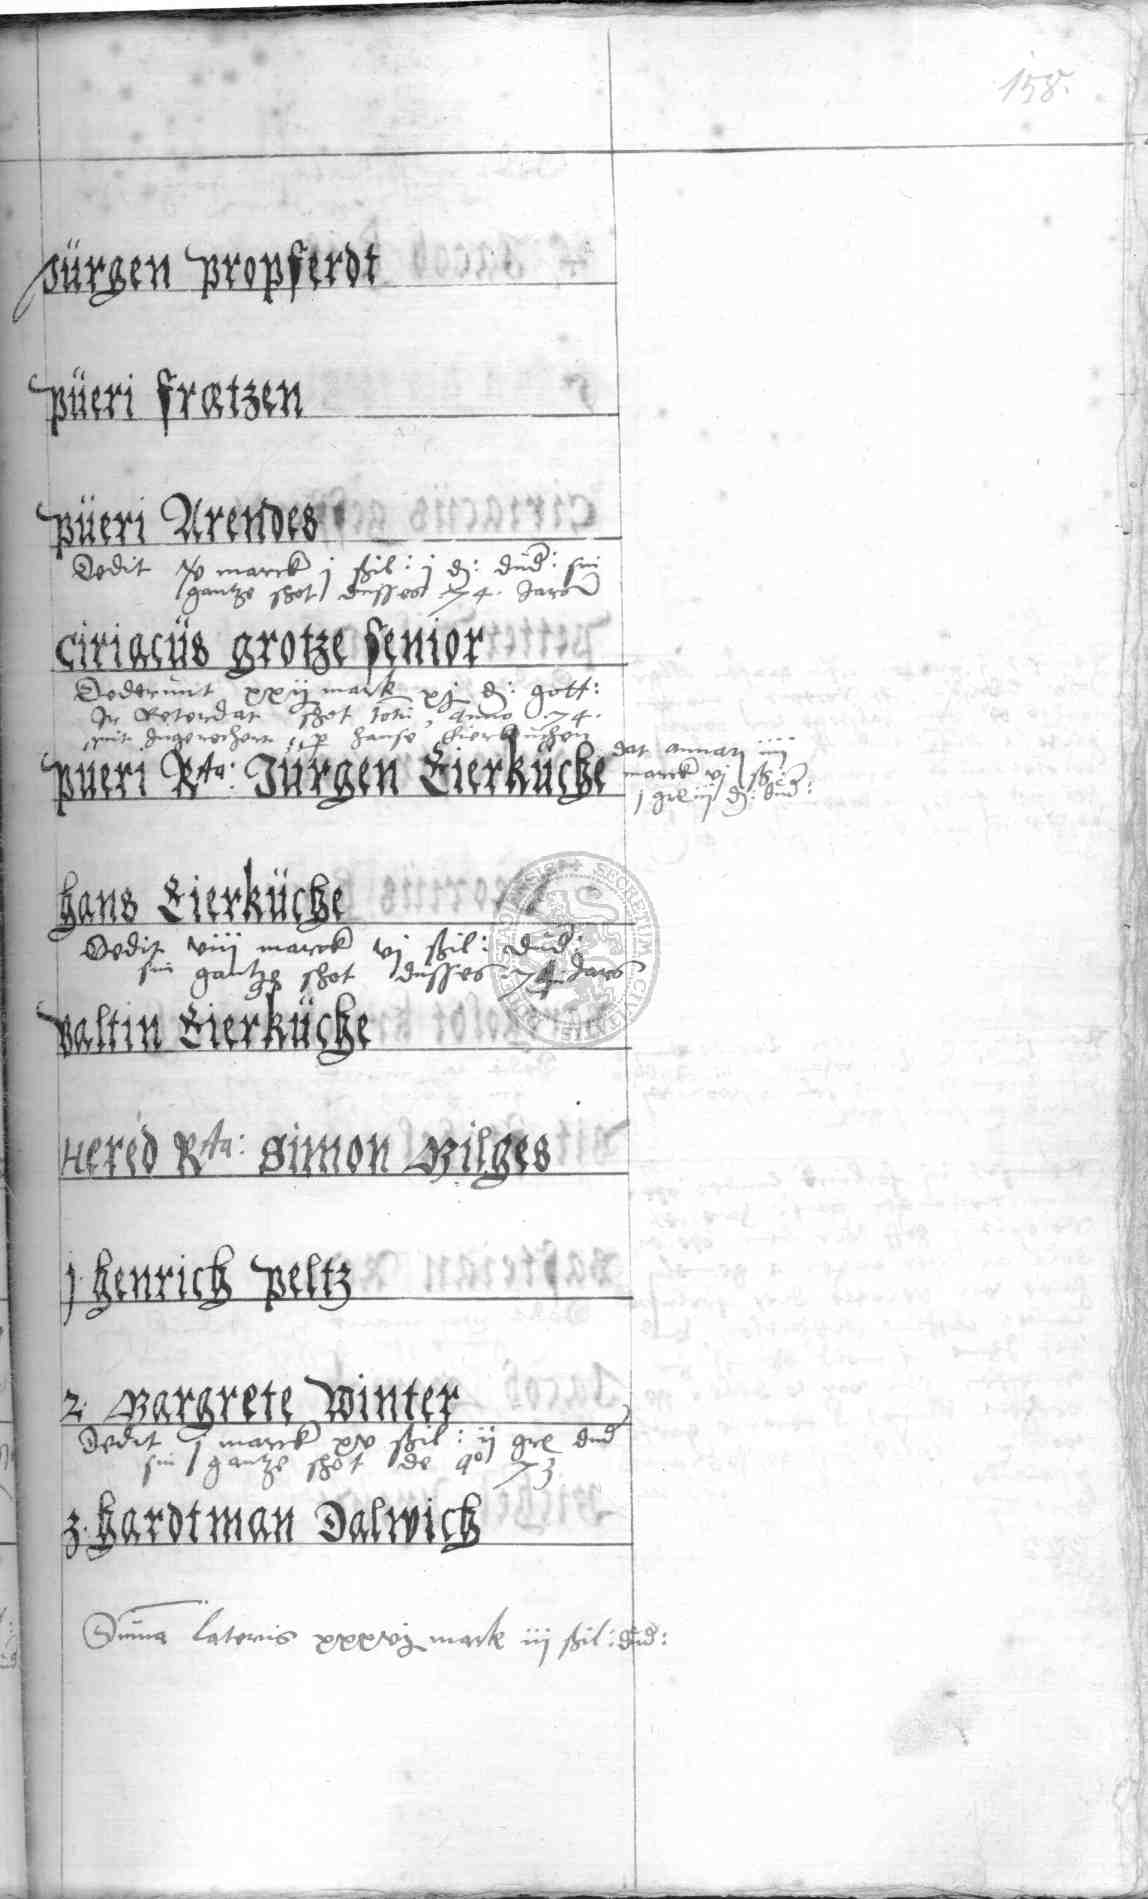 158.
Jürgen Propferdt
Püeri Fratzen
Püeri Arendes
Dedit xv marck j ßzil: j d: dud: sin
gantze shot dusses 74. Jares
Ciriacüs Grotze Senior
Dederunt xxij mark xj d: gott:
Ir Reterdat shot totu anno 74.
mit Ingerechent p hanse Eierkuchen
Püeri Rta: Jürgen Eierküche
dat annarj iiij
marck vj ßz
j gre iij d: dud:
Hans Eierküche
Dedit viij marck vj ßzil: dud:
sin gantze shot dusses 74. Jars
Valtin Eierküche
Hered Rta: Simon Milges
1. Henrich Peltz
2. Margrete Winter
Dedit j marck xv ßzil: ij gre dud
sin gantze shot de ao 73
3. Hardtman Dalwich
Suma lateris xxxvj mark iij ßzil: dud:
SECRETUM CIVITATIS